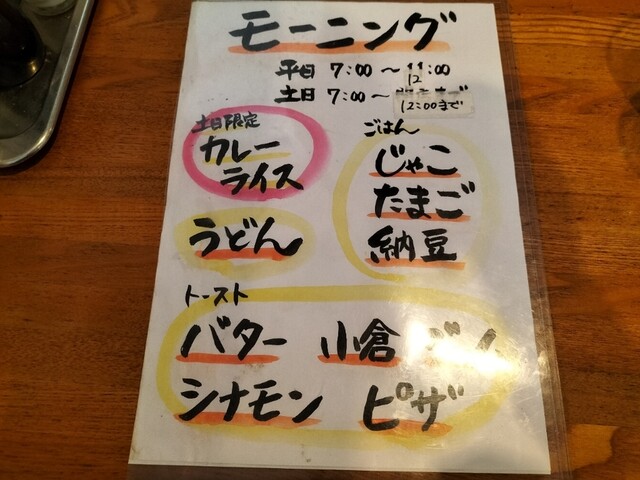 モーニング
平日 7:00 ～ 11:00
12
土日 7:00 ～
12:00まで
土日限定
カレー
ライス
うどん
ごはん
じゃこ
たまご
納豆
トースト
バター 小倉
シナモン ピザ